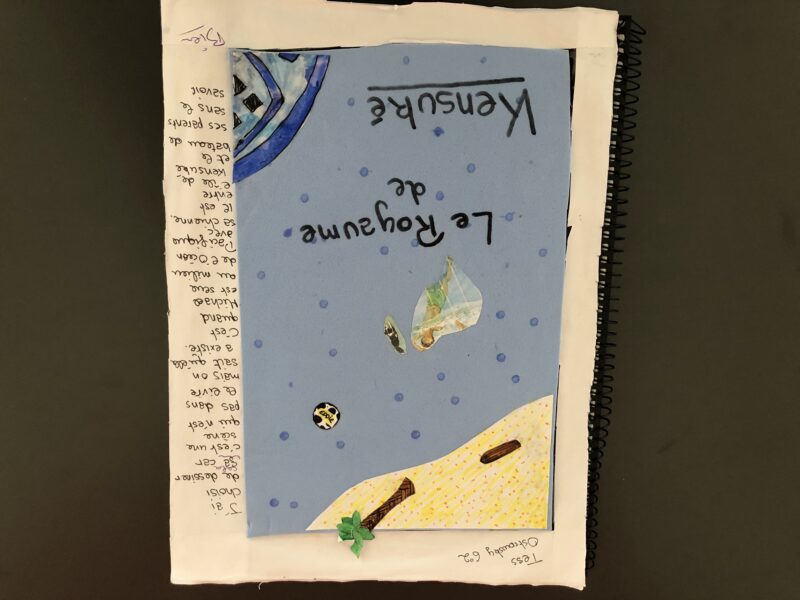 Tess
6°2
Le Royaume
de
Kensuké
J'ai
choisi
de dessiner
car
c'est une
scène
qui n'est
pas dans
le livre
mais on
sait qu'elle
a existé.
C'est
quand
Michael
est seul
au milieu
de l'Océan
Pacifique
avec
sa chienne.
Il est
entre
l'île de
Kensuke
et le
bateau de
ses parents
sans le
savoir
Bien